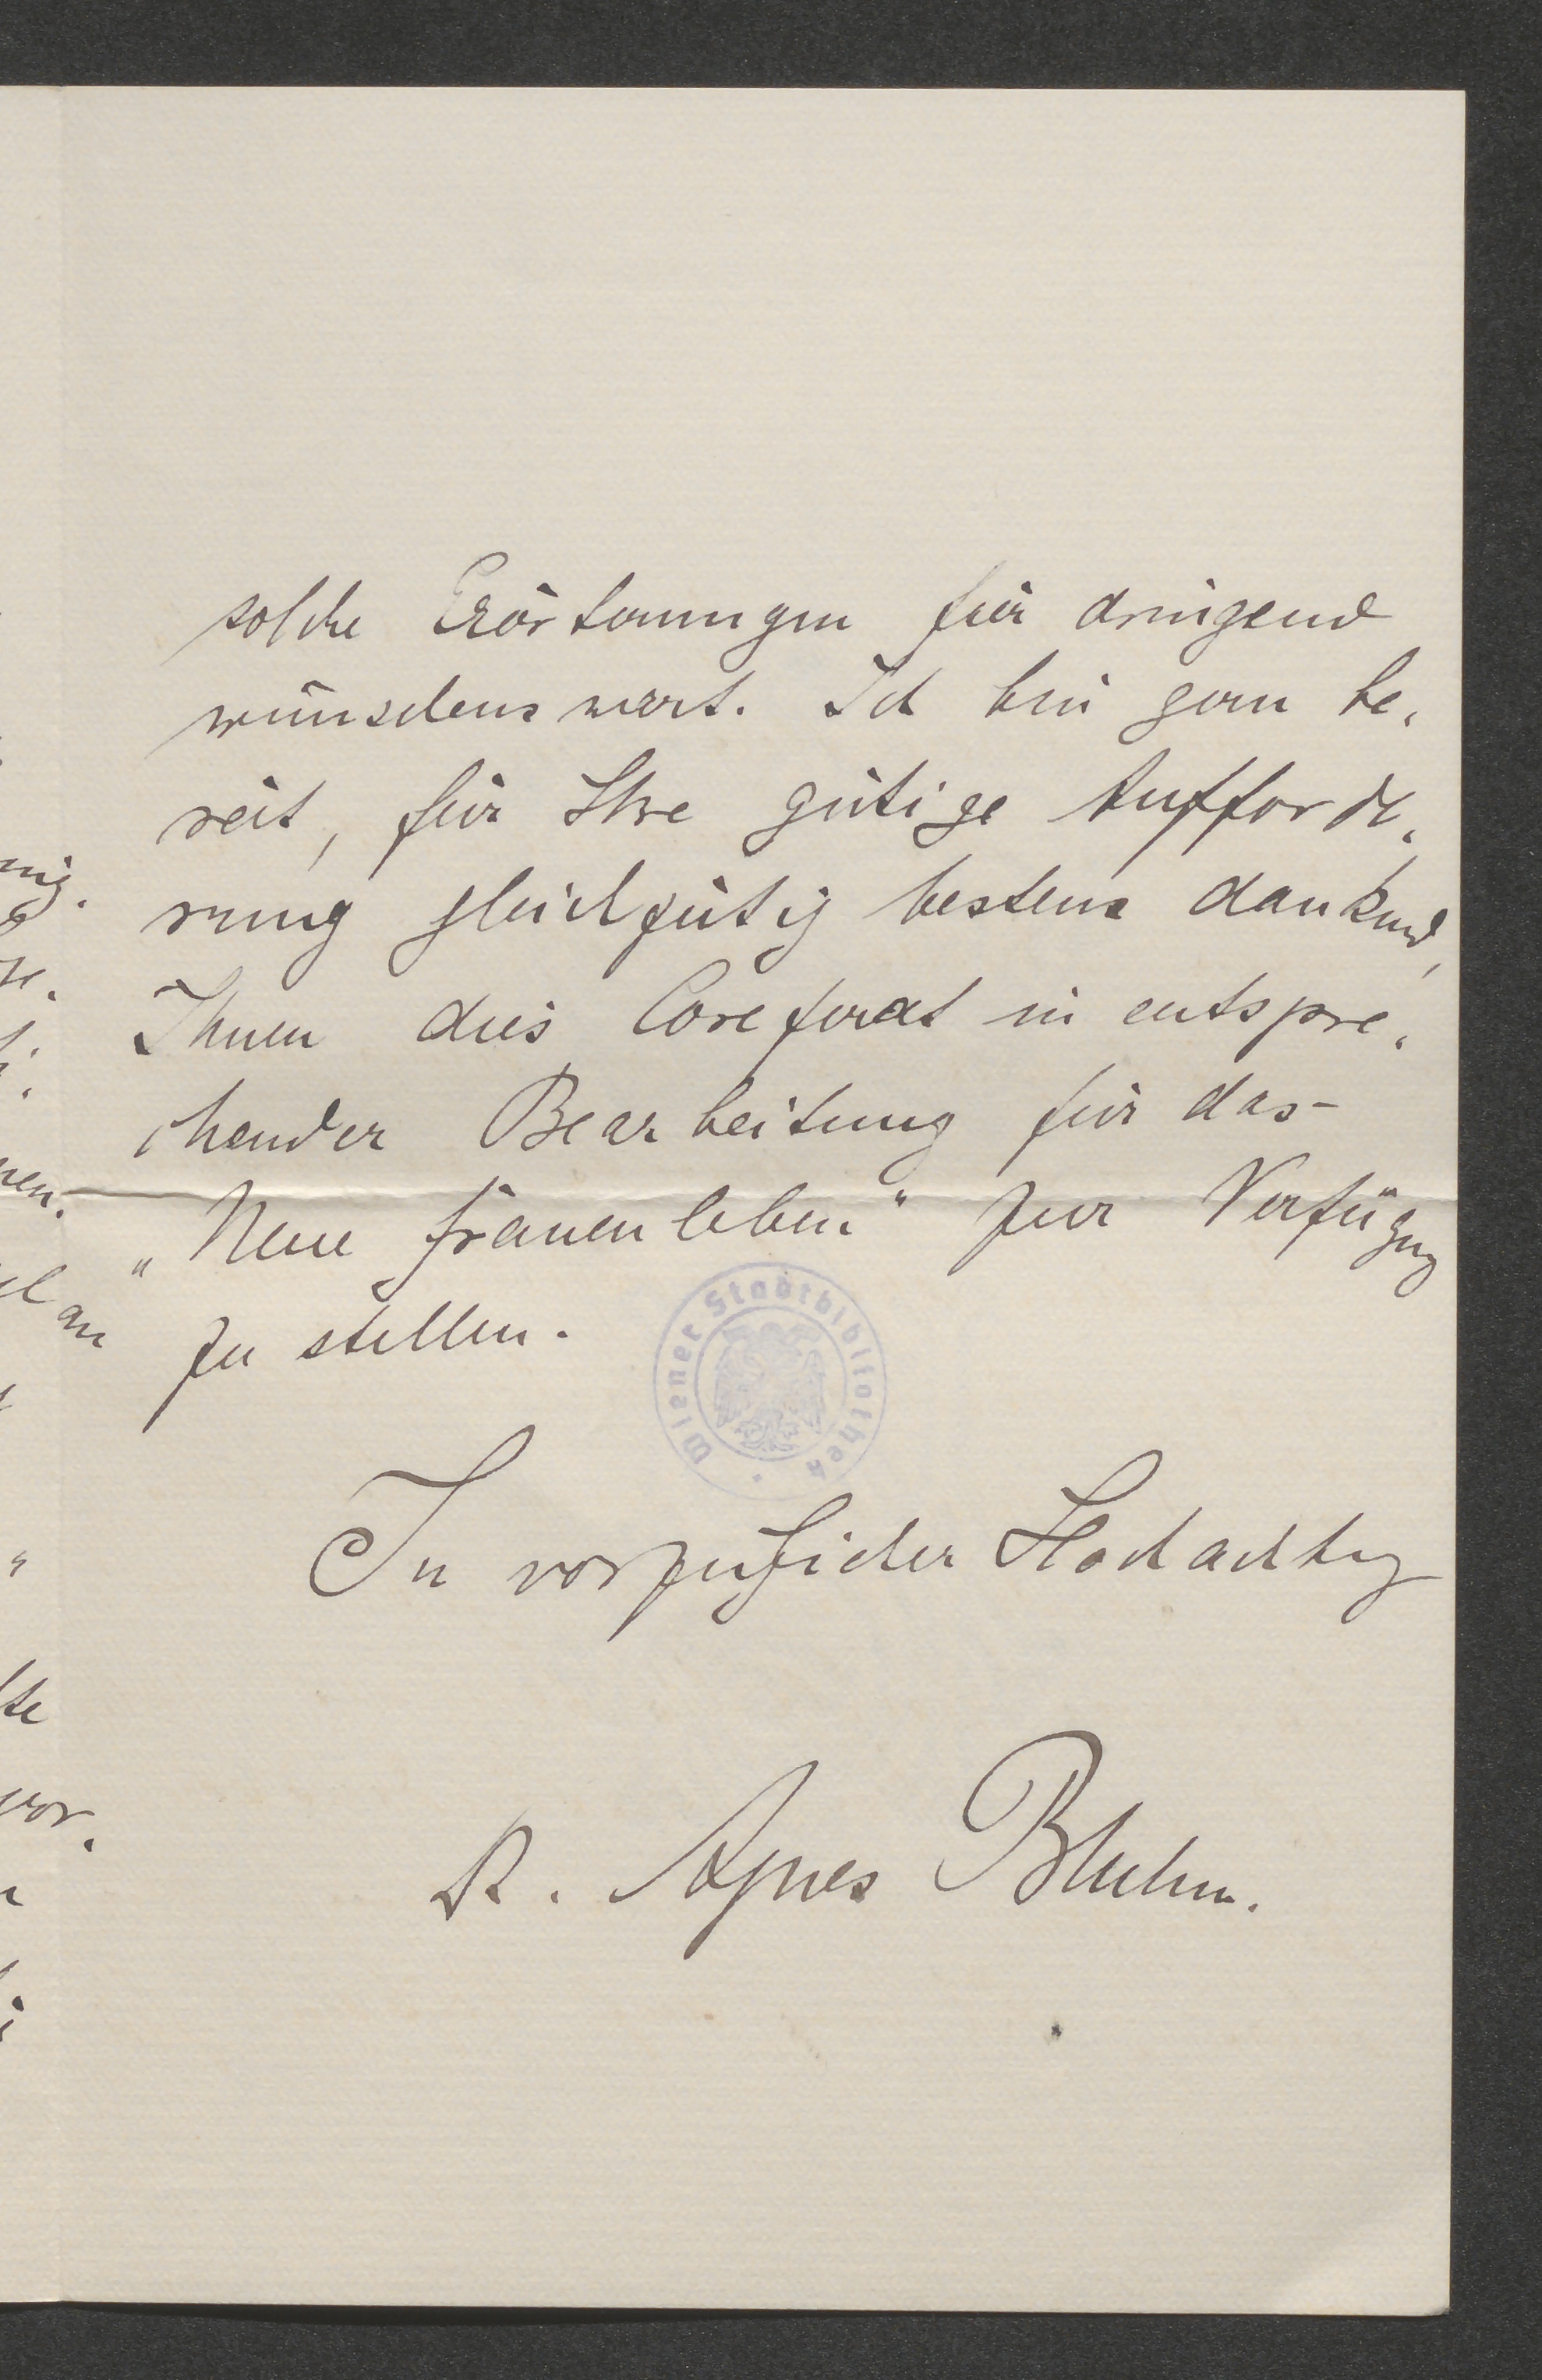 solche Erörterungen für dringend
wünschenswert. Ich bin gern be-
reit, für Ihre gütige Aufforde-
rung gleichzeitig bestens dankend,
Ihnen dies Coreferat in entspre-
chender Bearbeitung für das
„Neue Frauenleben" zur Verfügung
zu stellen.
Wiener Stadtbibliothek
In vorzüglicher Hochachtung
Dr. Agnes Bluhm.
nig.
nen.
an
lte
vor.